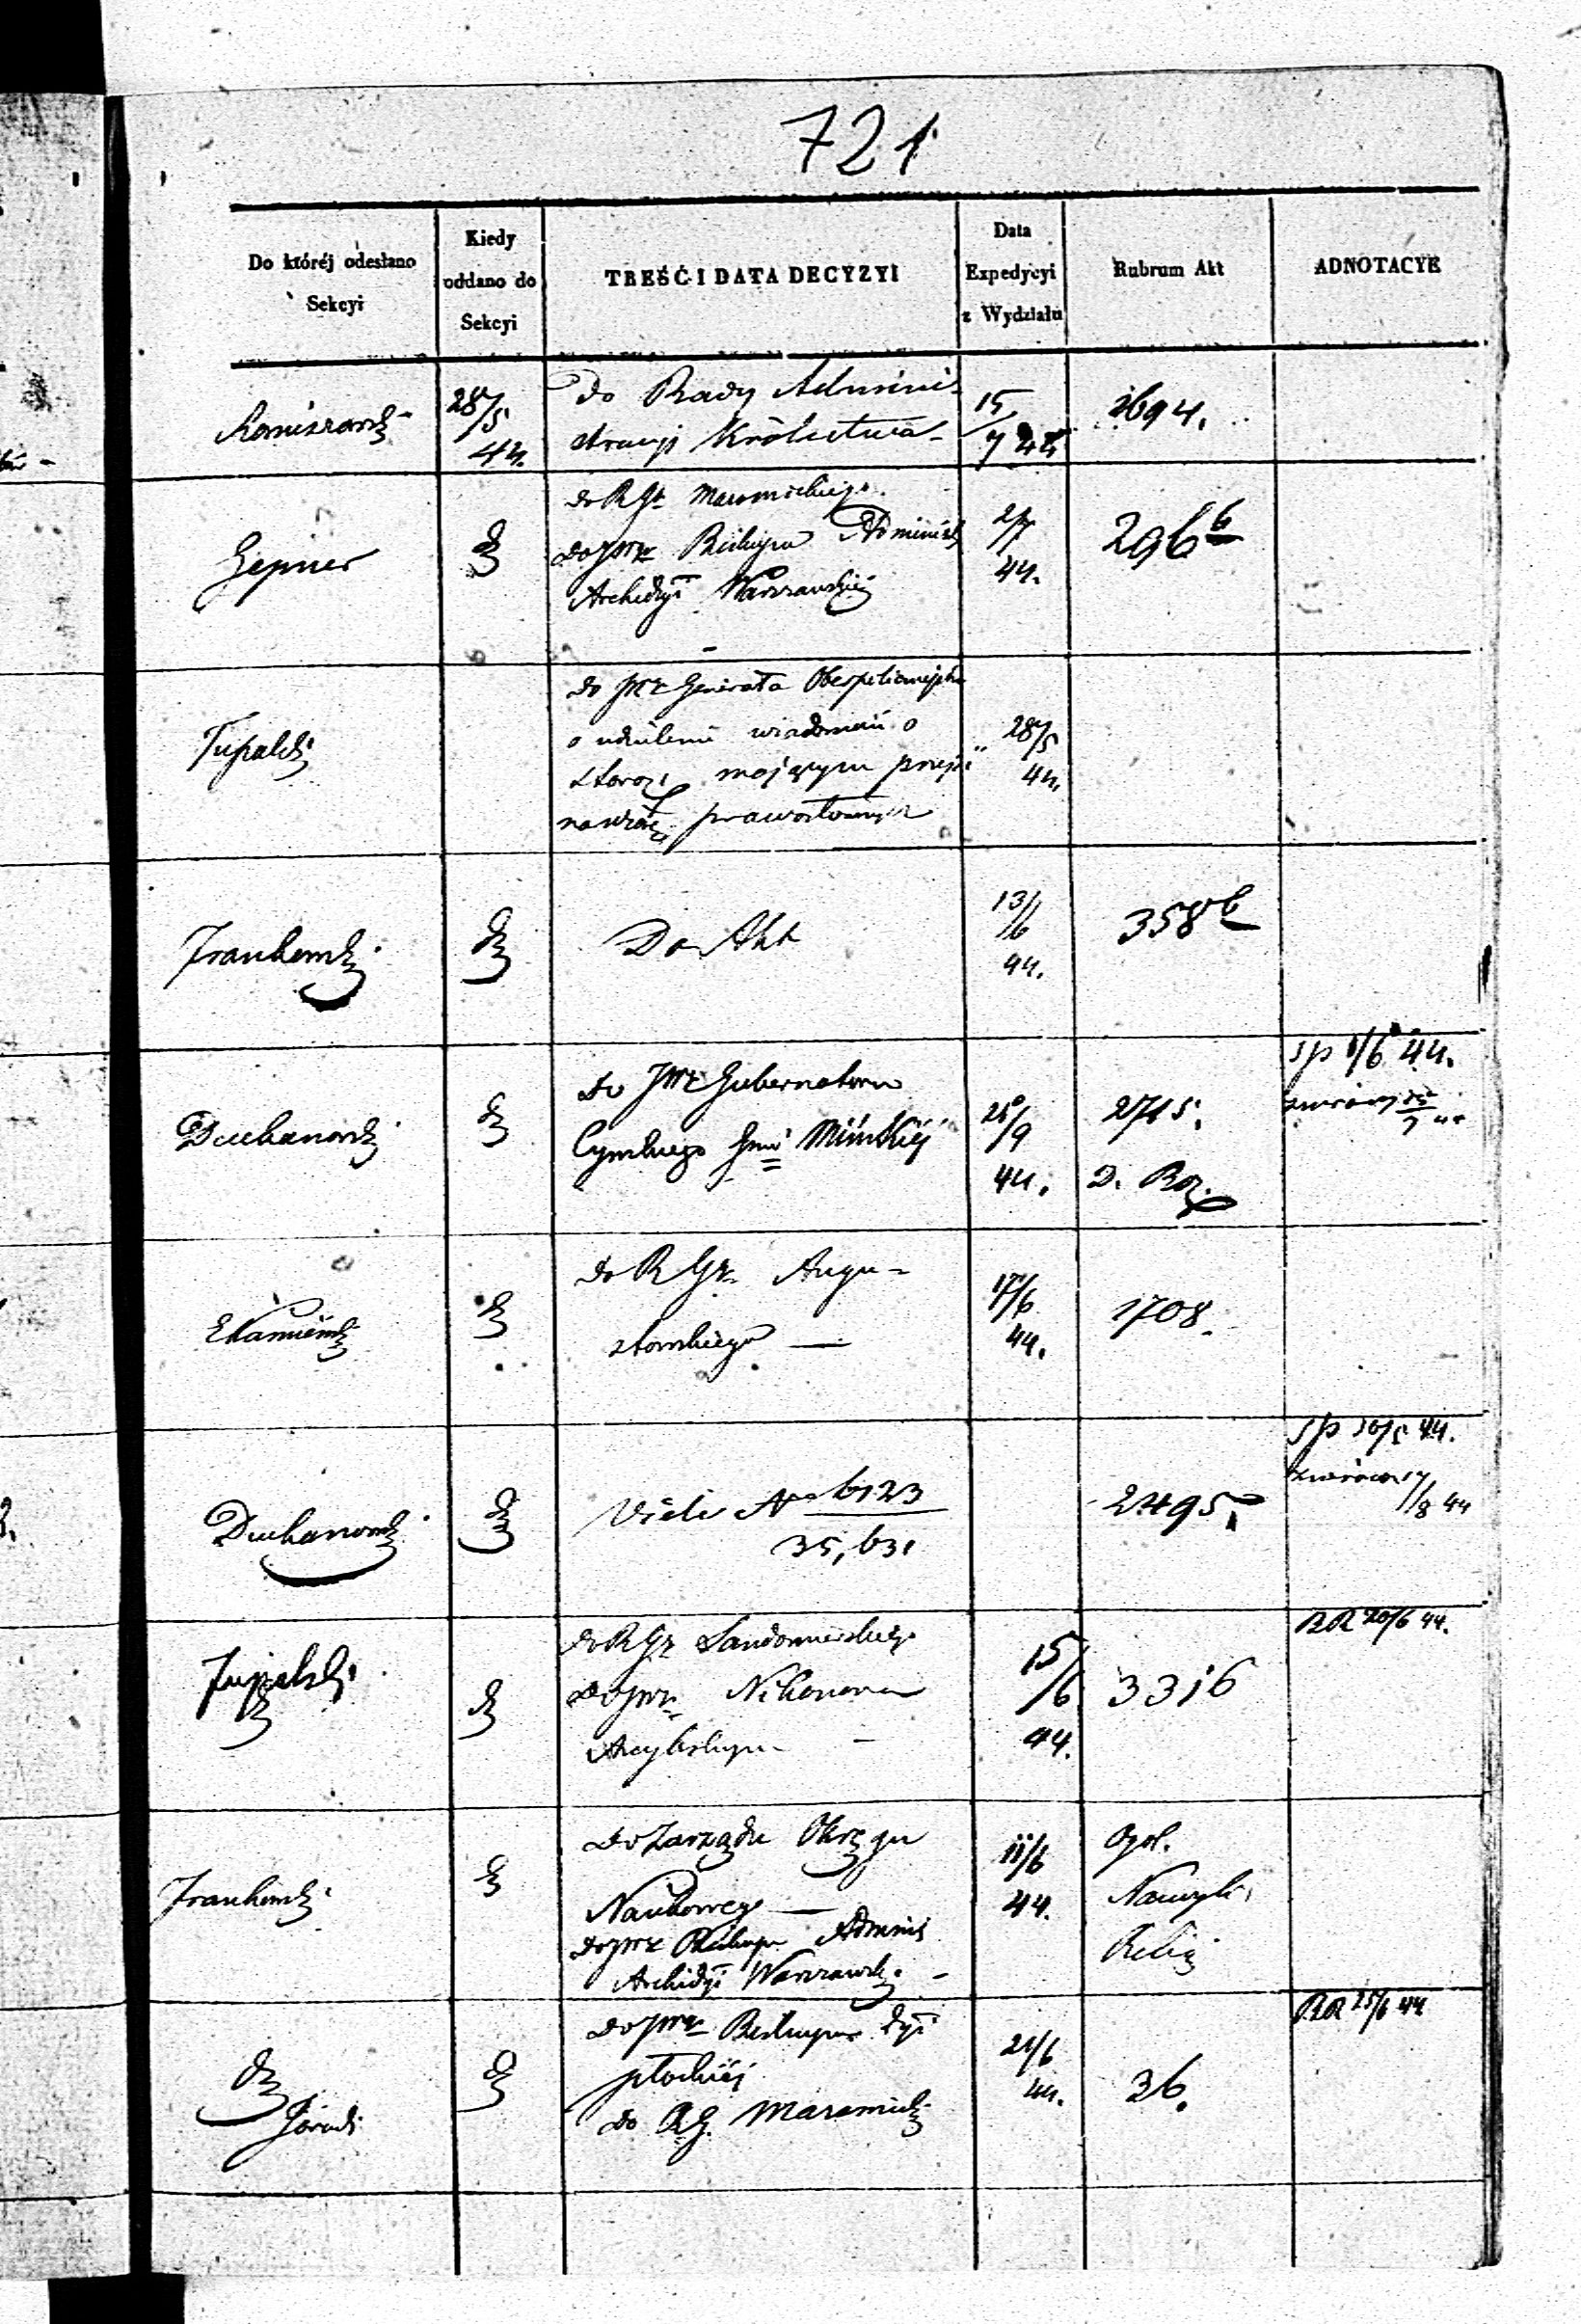 721
Do któréj odesłano
Sekcyi
Kiedy
oddano do
Sekcyi
TREŚĆ I DATA DECYZYI
Data
Expedycyi
z Wydziału
Rubrum Akt
ADNOTACYE
28/5
44.
Do Rady Admini-
stracyi Królestwa
15/7 44
1694.
Gepner
do RGo Mazowieckiego.
do JWX Biskupa Administ
Archidyi Warszawskiej
2/7
44.
296 b
Tupalski
do JWX Generała
o udzielenie wiadomości o
mającym przejść
na wiarę prawosławną
28/5
44.
Frankowski
Do Akt
13/6
44.
358 b
Duchanowski
do JWX Gubernatora
Cywilnego Gnii Mińskiéj
44.
2715.
D. Roz.
sp 1/6 44.
do RGz Augu-
stowskiego
17/6
44.
1708.
Duchanowski
Vide No 6123
35,631
2495.
sp 30/5 44.
zwrócony 17/8 44
Tupalski
do RGz Sandomierskiego
do JWX Nikanora
Arcybiskupa
15/6
44.
3316
RR 20/6 44.
Frankowski
do Zarządu Okręgu
Naukowego
do JWX Biskupa Adminis
Archidyi Warszawsk.
11/6
44.
Ogól.
Relig
do JWX Biskupa Dyi
płockiéj
do RG. Mazowieck
21/6
44.
36.
RR 25/6 44